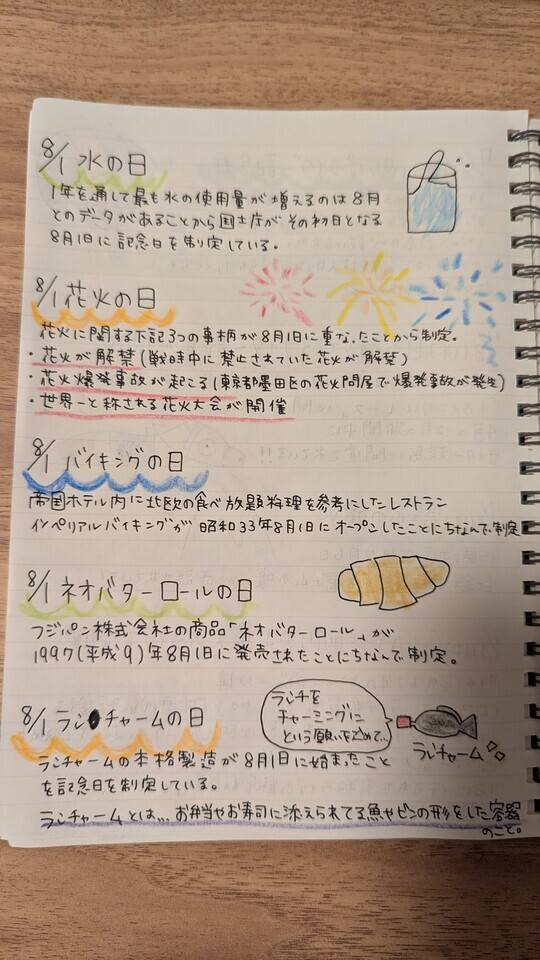 8/1 水の日
1年を通して最も水の使用量が増えるのは8月
とのデータがあることから国土庁がその初日となる
8月1日に記念日を制定している。
8/1 花火の日
花火に関する下記3つの事柄が8月1日に重なったことから制定。
・花火が解禁(戦時中に禁止されていた花火が解禁)
・花火爆発事故が起こる(東京都墨田区の花火問屋で爆発事故が発生)
・世界一と称される花火大会が開催
8/1 バイキングの日
帝国ホテル内に北欧の食べ放題料理を参考にしたレストラン
インペリアルバイキングが昭和33年8月1日にオープンしたことにちなんで制定
8/1 ネオバターロールの日
フジパン株式会社の商品「ネオバターロール」が
1997(平成9)年8月1日に発売されたことにちなんで制定。
8/1 ランチャームの日
ランチを
チャーミングに
という願いを込めて…
ランチャーム
ランチャームの本格製造が8月1日に始まったこと
を記念日を制定している。
ランチャームとは… お弁当やお寿司に添えられてる魚やビンの形をした容器
のこと。